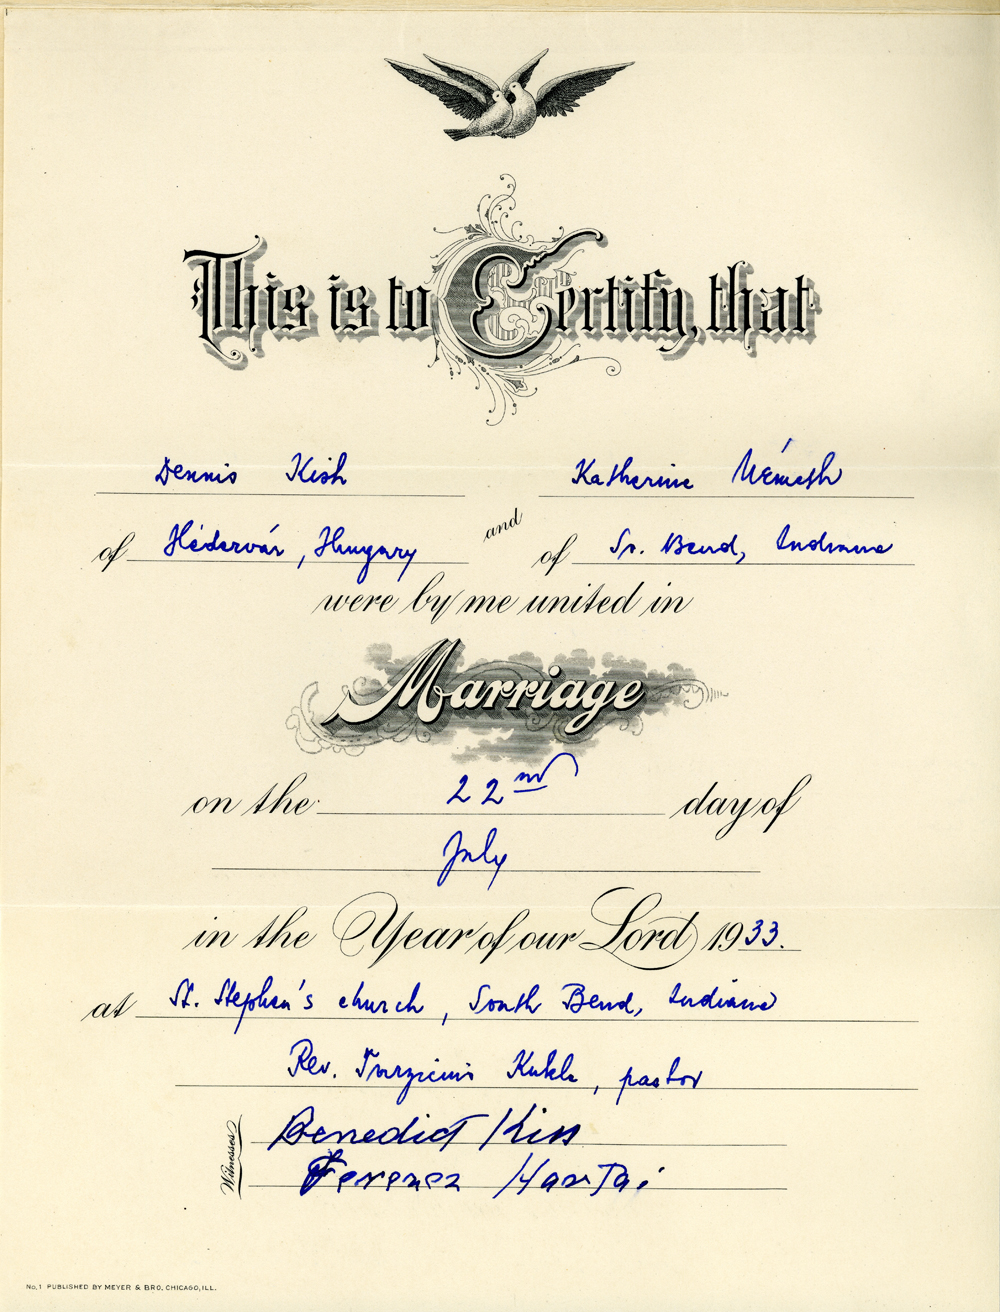 This is to Certify, that
Dennis Kish and Katherine Németh
of Hédervár, Hungary of So. Bend, Indiana
were by me united in
Marriage
on the 22nd day of
July
in the Year of our Lord 1933.
at St. Stephen's church, South Bend, Indiana
Rev. Kukla, pastor
Witnesses Benedict Kiss
Ferencz Hartai
No. 1 PUBLISHED BY MEYER & BRO. CHICAGO, ILL.